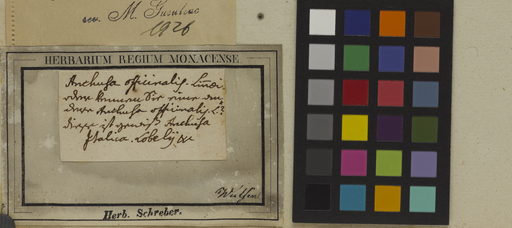 rev. M. Gusuleac
1926
HERBARIUM REGIUM MONACENSE
Anchusa officinalis. Linnei
oder kennen Sie eine an-
dere Anchusa officinalis L.?
dieses ist gewiß Anchusa
Italica. Lobelij
Wulfen
Herb. Schreber.